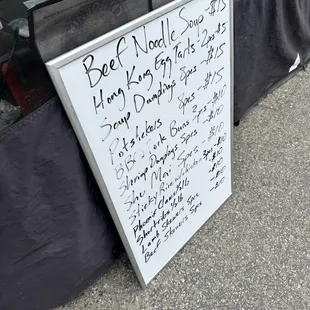 Beef Noodle Soup - $15
Hong Kong Egg Tarts 2pcs $5
Soup Dumplings 8pcs - $15
Potstickers 8pcs - $15
BBQ Pork Buns 2pcs - $10
Shrimp Dumplings 5pcs - $10
Shu Mai 5pcs - $10
Sticky Rice Chicken 2pcs - $10
$10
Lamb Skewers 5pcs - $10
Beef Skewers 5pcs